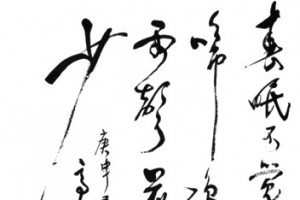 春眠不覺
啼鳥
雨聲花
少
庚申